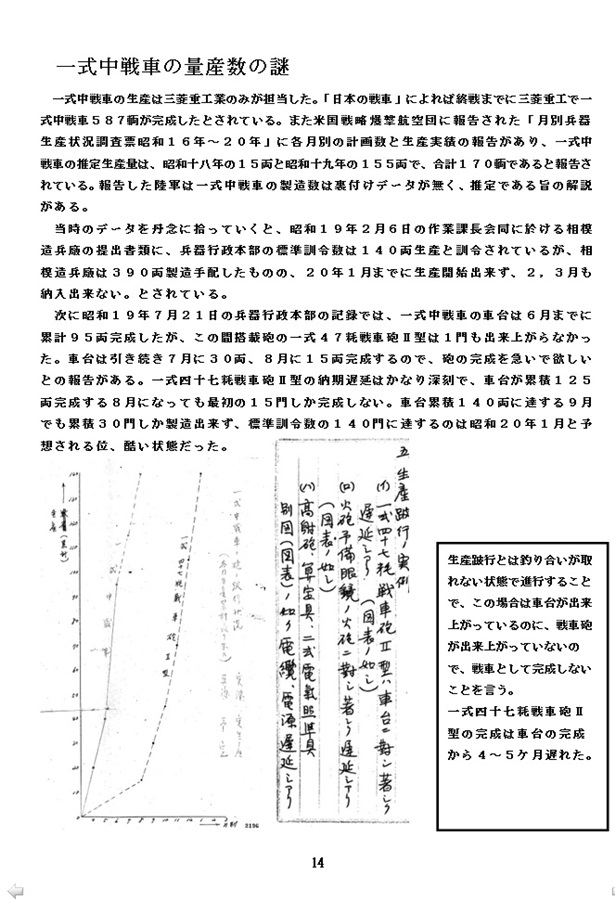 一式中戦車の量産数の謎
一式中戦車の生産は三菱重工業のみが担当した。「日本の戦車」によれば終戦までに三菱重工で一
式中戦車５８７輌が完成したとされている。また米国戦略爆撃航空団に報告された「月別兵器
生産状況調査票昭和１６年～２０年」に各月別の計画数と生産実績の報告があり、一式中
戦車の推定生産量は、昭和十八年の１５両と昭和十九年の１５５両で、合計１７０輌であると報告さ
れている。報告した陸軍は一式中戦車の製造数は裏付けデータが無く、推定である旨の解説
がある。
当時のデータを丹念に拾っていくと、昭和１９年２月６日の作業課長会同に於ける相模
造兵廠の提出書類に、兵器行政本部の標準訓令数は１４０両生産と訓令されているが、相
模造兵廠は３９０両製造手配したものの、２０年１月までに生産開始出来ず、２，３月も
納入出来ない。とされている。
次に昭和１９年７月２１日の兵器行政本部の記録では、一式中戦車の車台は６月までに
累計９５両完成したが、この間搭載砲の一式４７粍戦車砲Ⅱ型は１門も出来上がらなかっ
た。車台は引き続き７月に３０両、８月に１５両完成するので、砲の完成を急いで欲しい
との報告がある。一式四十七粍戦車砲Ⅱ型の納期遅延はかなり深刻で、車台が累積１２５
両完成する８月になっても最初の１５門しか完成しない。車台累積１４０両に達する９月
でも累積３０門しか製造出来ず、標準訓令数の１４０門に達するのは昭和２０年１月と予
想される位、酷い状態だった。
五 生産跛行ノ実例
(イ) 一式四十七粍戦車砲Ⅱ型ハ車台ニ対シ著シク
遅延シアリ （図表ノ如シ）
(ロ) 火砲予備眼鏡ノ火砲ニ対シ著シク遅延シアリ
（図表ノ如シ）
(ハ) 高射砲、算定具、二式電気照準具
別図（図表）ノ如ク電纜、電源遅延シアリ
一式中戦車
一式四十七粍戦車砲Ⅱ型
月別
2196
生産跛行とは釣り合いが取
れない状態で進行すること
で、この場合は車台が出来
上がっているのに、戦車砲
が出来上がっていないの
で、戦車として完成しない
ことを言う。
一式四十七粍戦車砲Ⅱ
型の完成は車台の完成
から４～５ケ月遅れた。
14